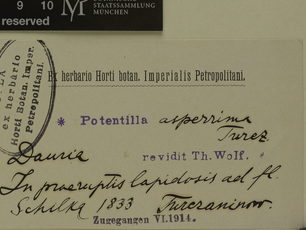 9 10
reserved
STAATSSAMMLUNG
MÜNCHEN
ex herbario
Horti Botan. Imper.
Petropolitani.
Ex herbario Horti botan. Imperialis Petropolitani.
* Potentilla asperrima
Turcz.
Dauria revidit Th. Wolf.
In praeruptis lapidosis ad fl.
Schilka 1833 Turczaninow.
Zugegangen VI.1914.